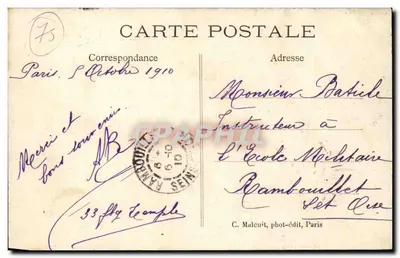 75
CARTE POSTALE
Correspondance
Adresse
Paris 5 Octobre 1910
Monsieur Baticle
Instructeur à
l'Ecole Militaire
Rambouillet
S et Oise
Merci et
bons souvenirs
AB
33 fbg Temple
RAMBOUILLET
8 -10
10
SEINE
C. Malcuit, phot-édit, Paris